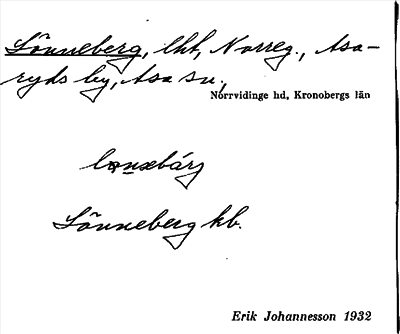 Lönneberg, lht, Norreg., Asa-
ryds by, Asa sn,
Norrvidinge hd, Kronobergs län
Lönneberg kb.
Erik Johannesson 1932